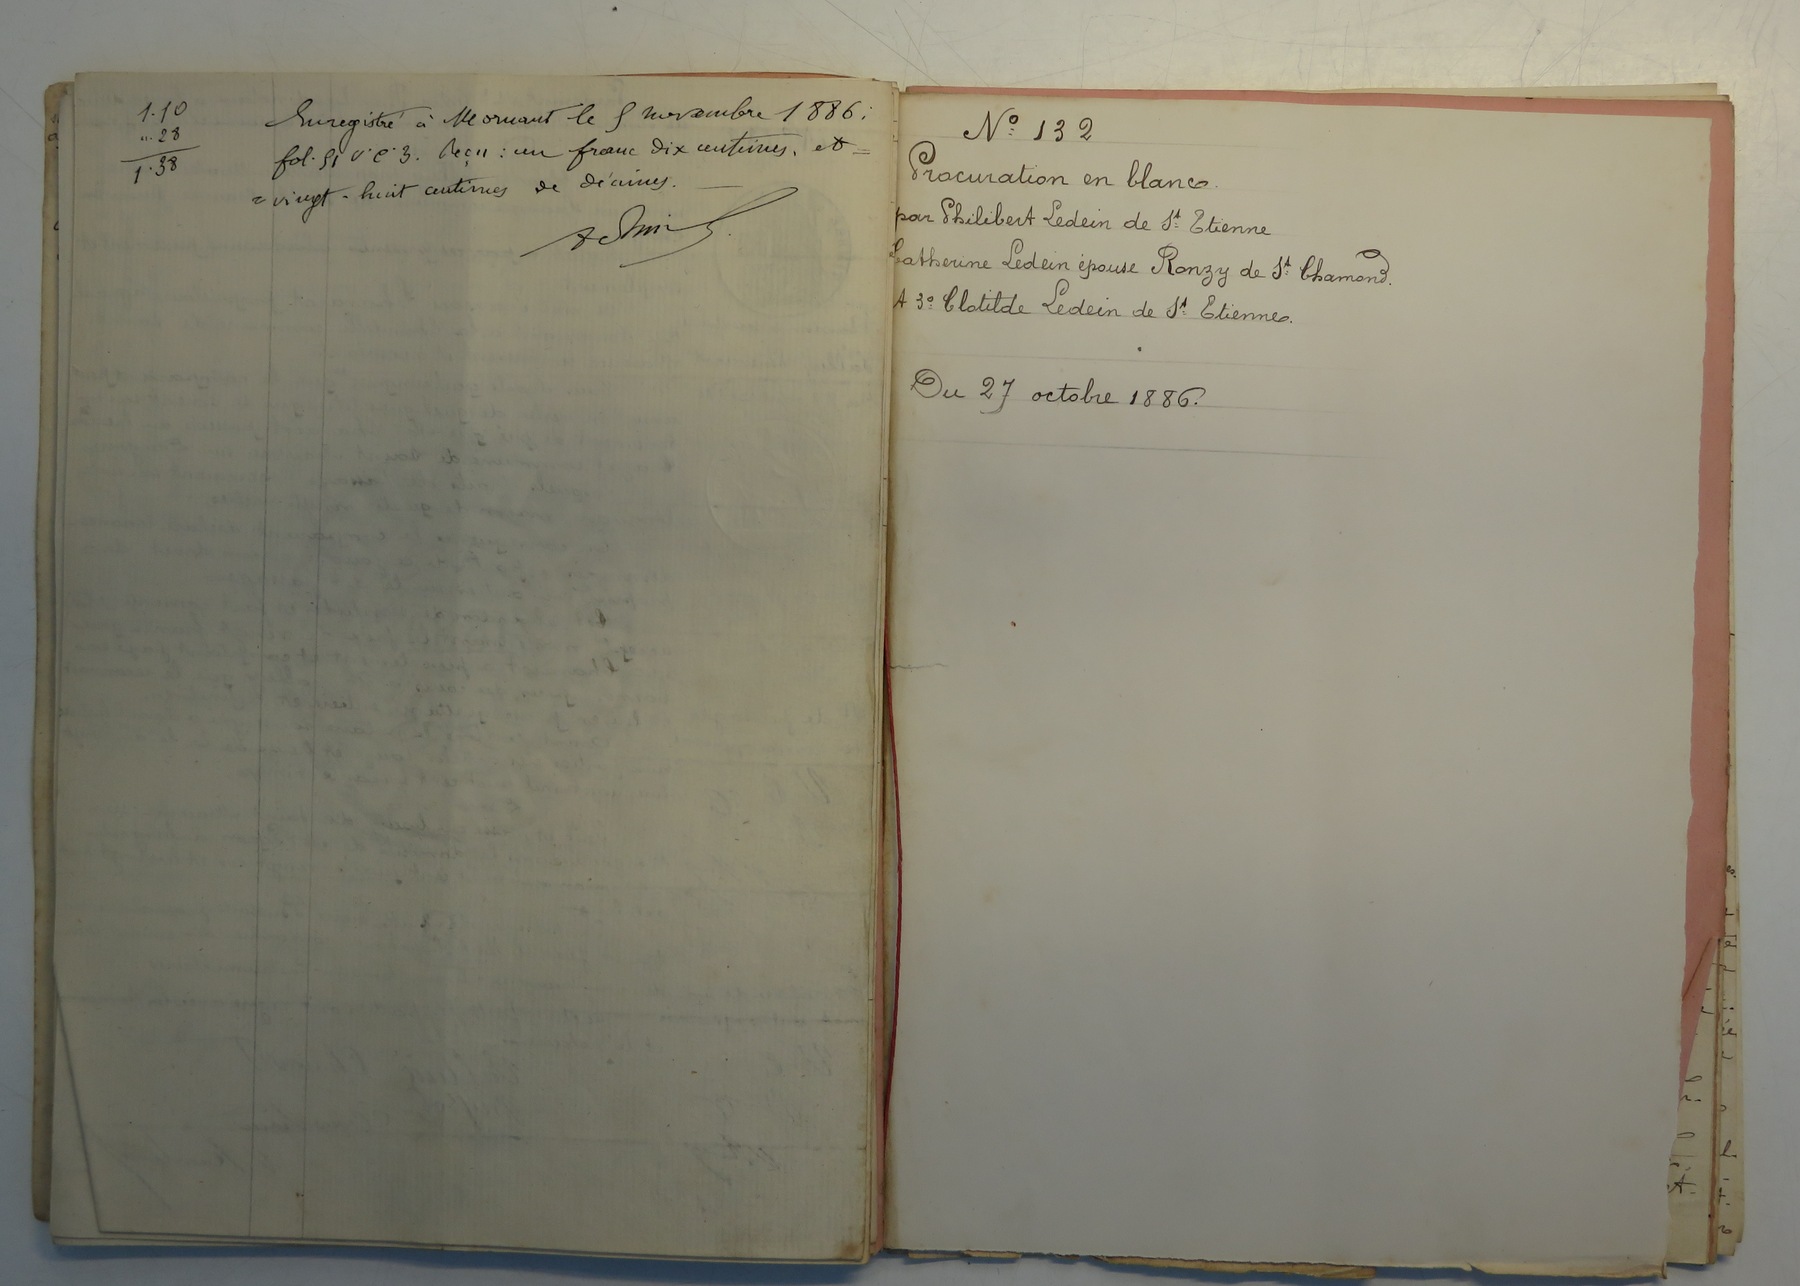 1.10
".28
1.38
Enregistré à Mornant le 5 novembre 1886;
fol. 51 v° c. 3. Reçu : un franc dix centimes, et =
= vingt-huit centimes de décimes. —
N° 132
Procuration en blanc.
par Philibert Ledein de St Etienne
Catherine Ledein épouse Ronzy de St Chamond.
& 3° Clotilde Ledein de St Etienne.
Du 27 octobre 1886.